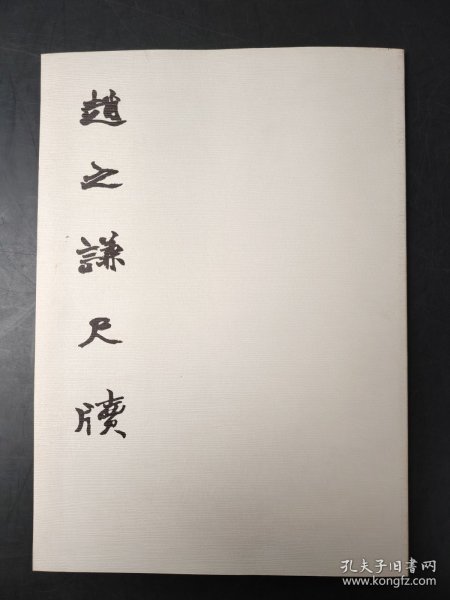 趙之謙尺牘
孔夫子旧书网
www.kongfz.com